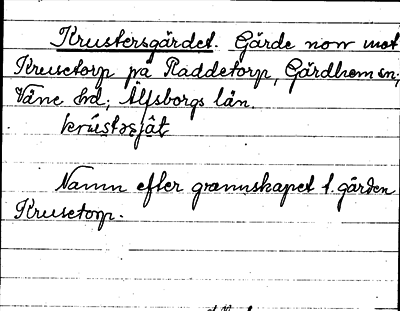 Krustersgärdet. Gärde norr mot
Krusetorp på Raddetorp, Gärdhem sn;
Väne hd, Älfsborgs län.
krústəs̱jä̂t
Namn efter grannskapet t. gården
Krusetorp.